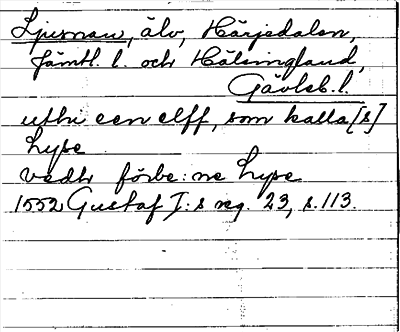 Ljusnan, älv, Härjedalen,
Jämtl. l. och Hälsingland,
Gävleb. l.
uthi een elff, som kalla[s]
Lyse
vedh förbe:ne Lyse
1552 Gustaf I:s reg. 23, s. 113.